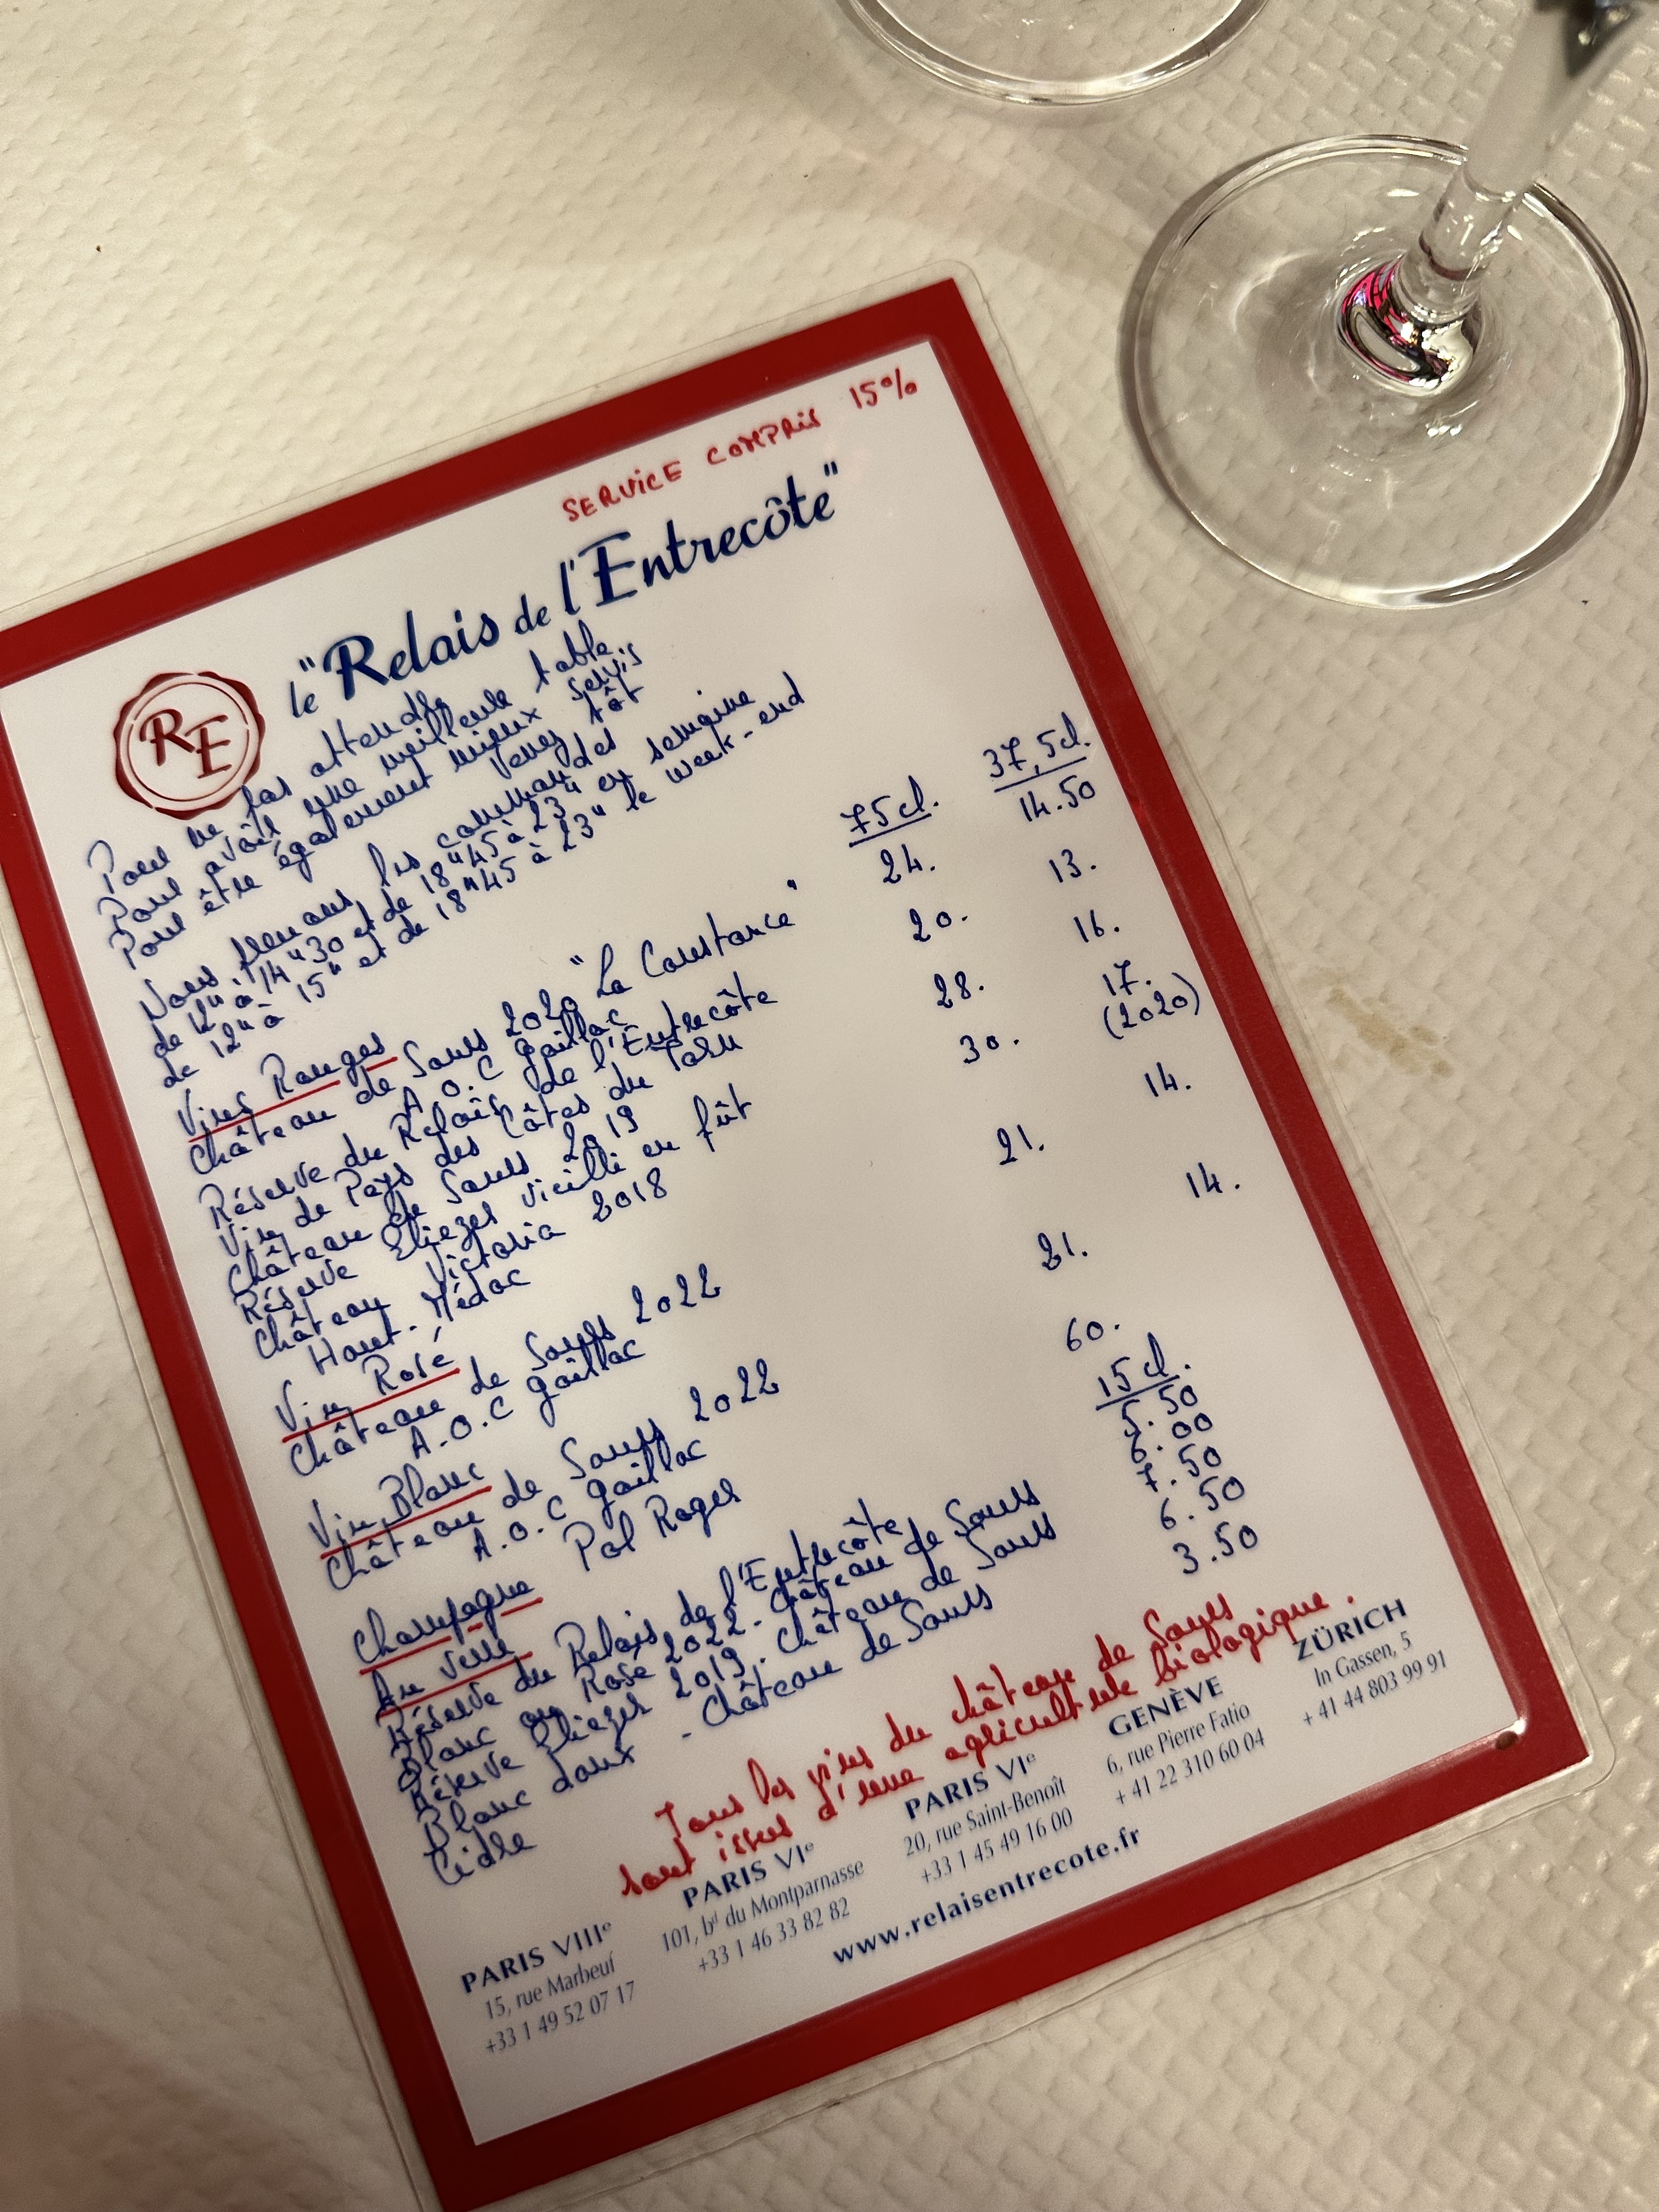 SERVICE COMPRIS 15%
le "Relais de l'Entrecôte"
RE
Pour ne pas attendre
Pour avoir une meilleure table
Pour être également mieux servis
Venez tôt
Nous prenons les commandes
de 12H à 14H30 et de 18H45 à 23H en semaine
de 12H à 15H et de 18H45 à 23H le week-end
75 cl. 37,5 cl.
Vins Rouges
Château de Saurs 2020 "La Constance" 24. 14.50
A.O.C Gaillac
Réserve du Relais de l'Entrecôte 20. 13.
Vin de Pays des Côtes du Tarn
Château de Saurs 2019 28. 16.
Réserve Eliezer vieilli en fût
Château Victoria 2018 30. 17.
Haut-Médoc (2020)
Vin Rosé
Château de Saurs 2022 21. 14.
A.O.C Gaillac
Vin Blanc
Château de Saurs 2022 21. 14.
A.O.C Gaillac
Champagne Pol Roger 60.
Au verre 15 cl.
Réserve du Relais de l'Entrecôte 5.50
Blanc ou Rosé 2022. Château de Saurs 6.00
Réserve Eliezer 2019. Château de Saurs 7.50
Blanc doux - Château de Saurs 6.50
Cidre 3.50
Tous les vins du château de Saurs
sont issus d'une agriculture biologique.
PARIS VIIIe
15, rue Marbeuf
+33 1 49 52 07 17
PARIS VIe
101, bd du Montparnasse
+33 1 46 33 82 82
PARIS VIe
20, rue Saint-Benoît
+33 1 45 49 16 00
GENÈVE
6, rue Pierre Fatio
+ 41 22 310 60 04
ZÜRICH
In Gassen, 5
+ 41 44 803 99 91
www.relaisentrecote.fr